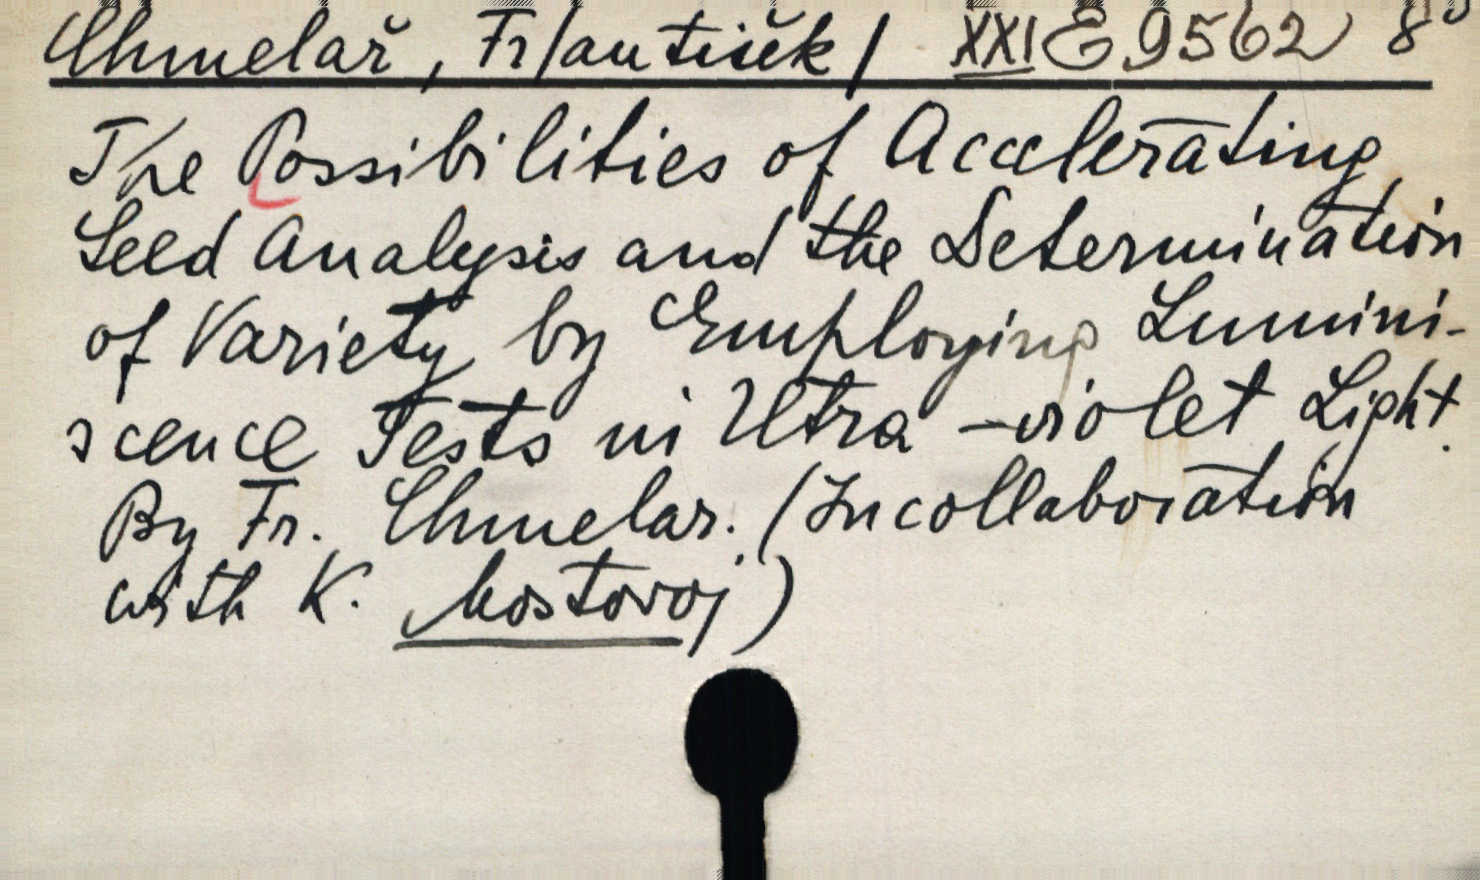 Chmelař, Fr/antišek/ XXI E 9562 8°
The Possibilities of Accelerating
Seed Analysis and the Determination
of Variety by Employing Lumini-
scence Tests in Ultra-violet Light.
By Fr. Chmelar. (In collaboration
with K. Mostovoj)